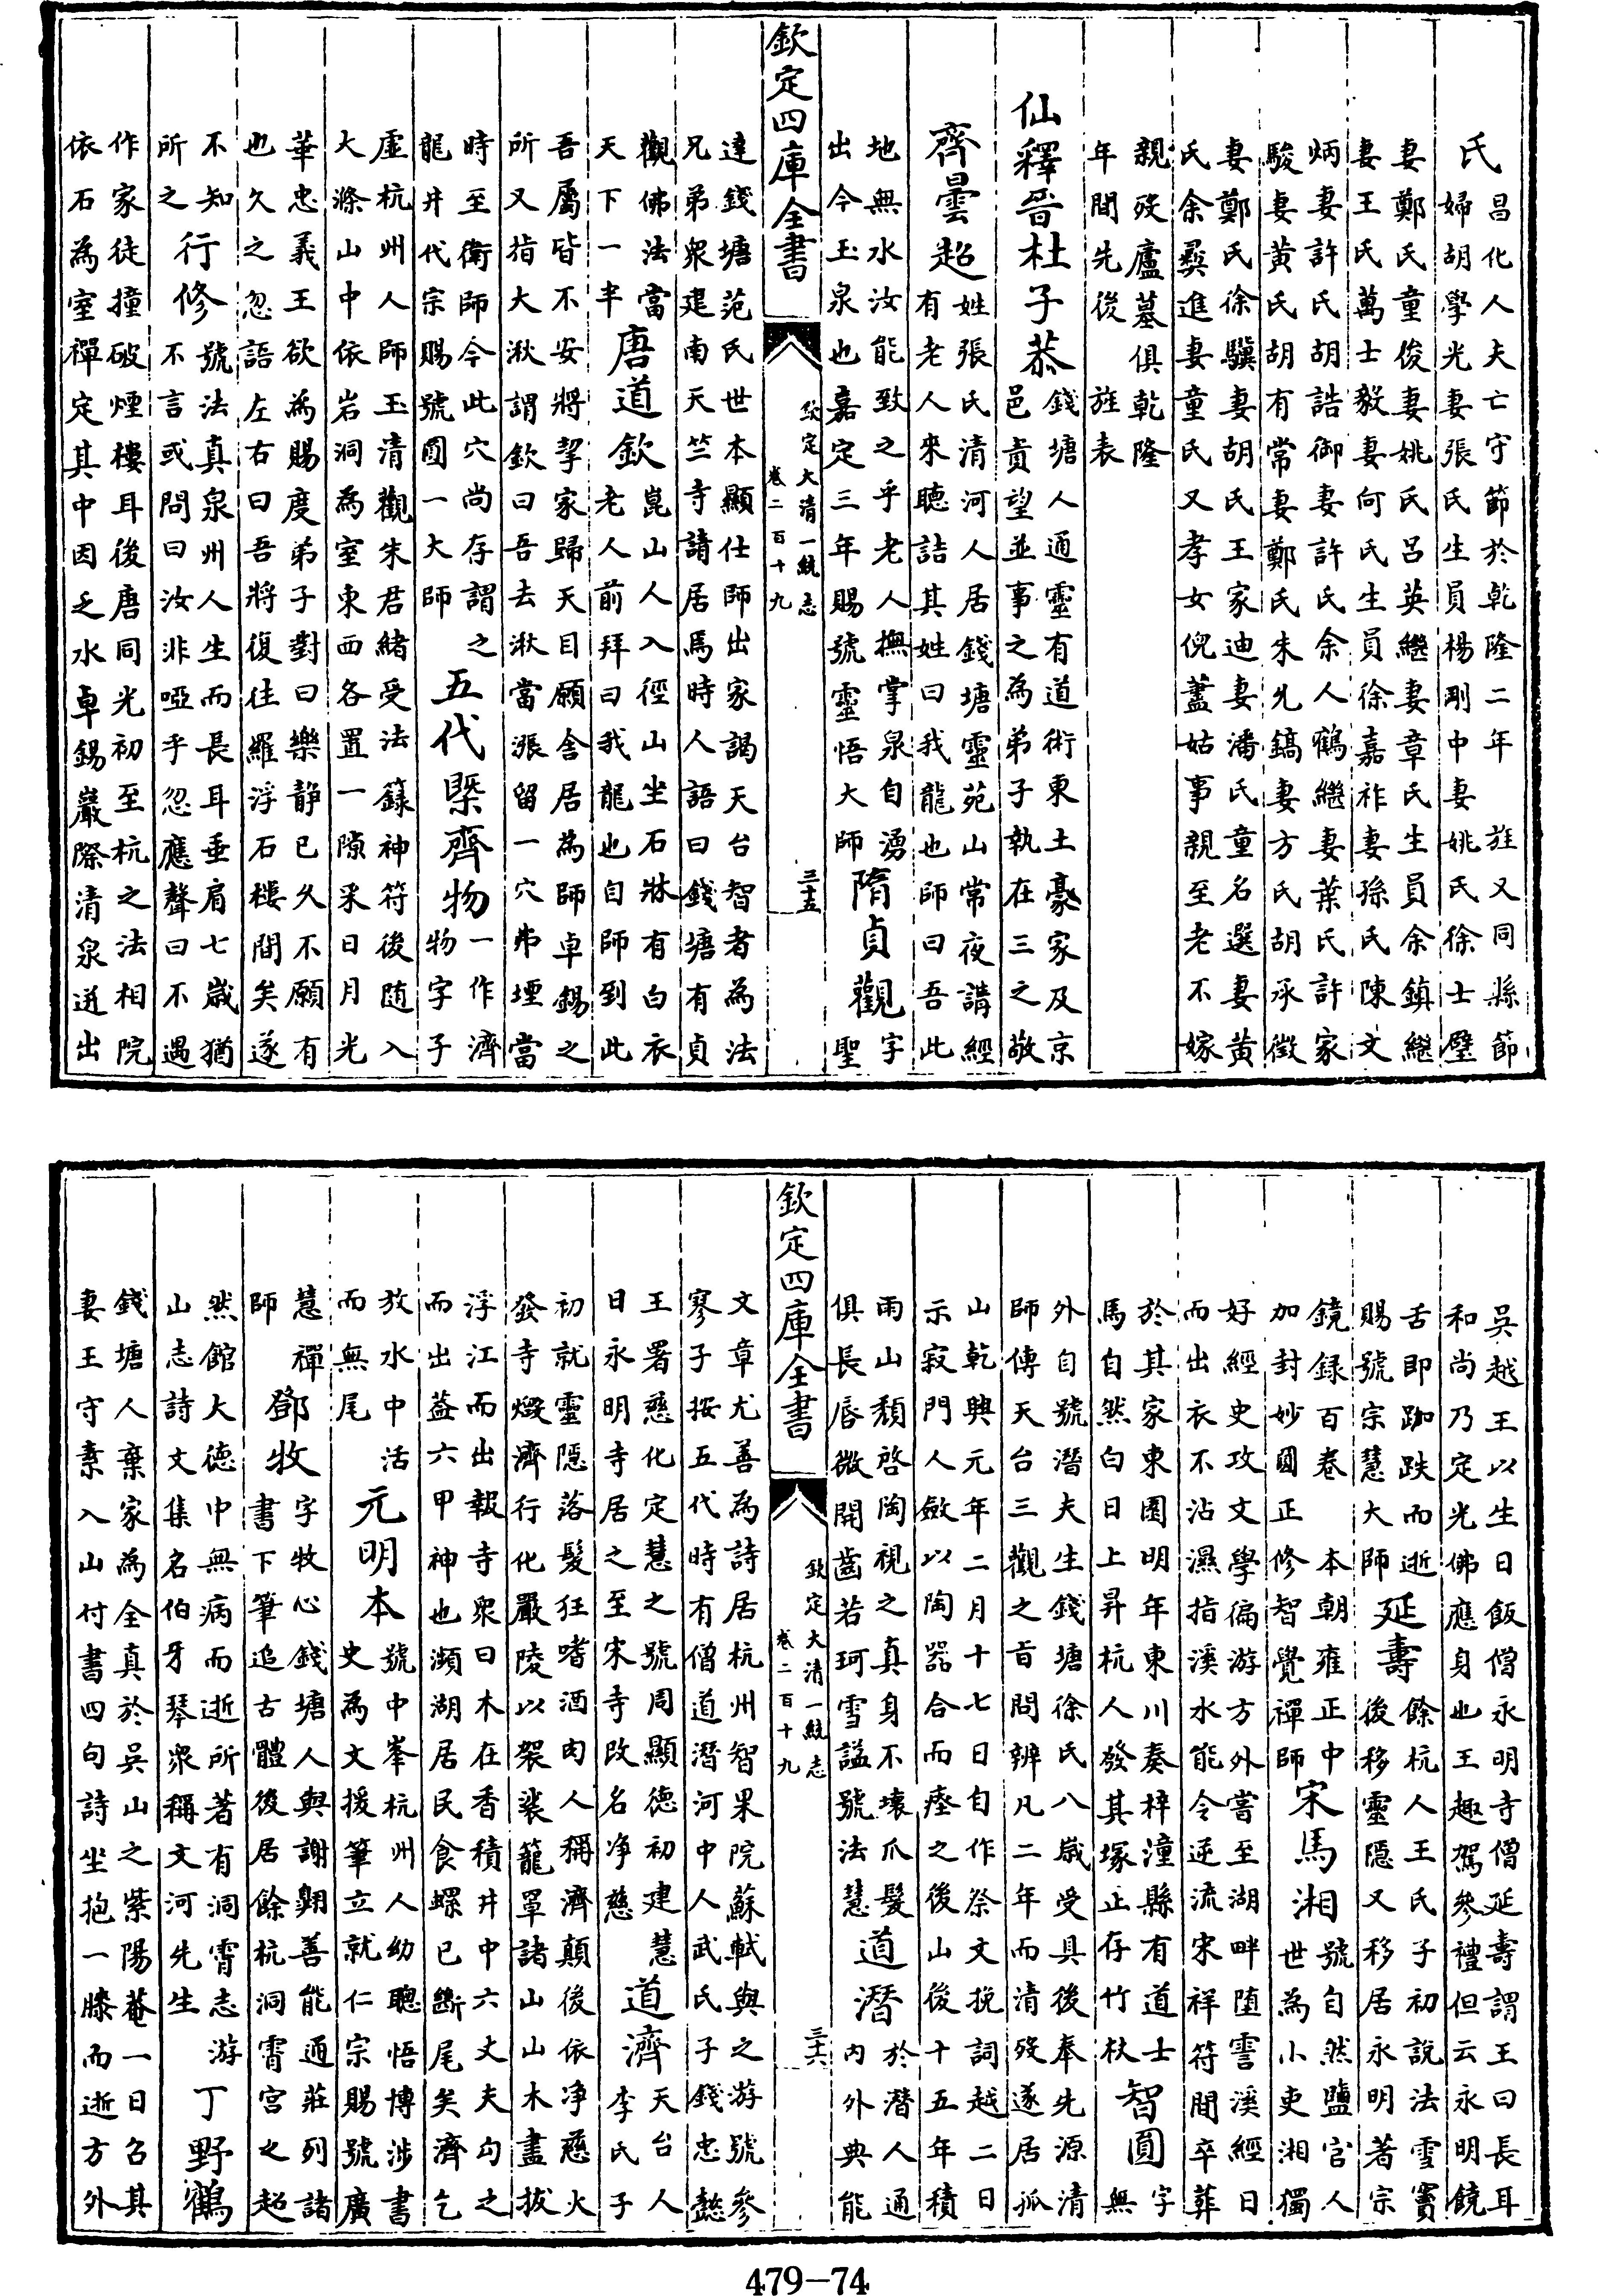 氏
昌化人夫亡守節於乾隆二年旌又同縣節
婦胡學光妻張氏生員楊剛中妻姚氏徐士璧
妻鄭氏童俊妻姚氏呂英繼妻章氏生員余鎮繼
妻王氏萬士毅妻何氏生員徐嘉祚妻孫氏陳文
炳妻許氏胡誥御妻許氏余人鶴繼妻葉氏許家
駿妻黃氏胡有常妻鄭氏朱允鎬妻方氏胡承徵
妻鄭氏徐驥妻胡氏王家迪妻潘氏童名選妻黃
氏余彝進妻童氏又孝女倪藎姑事親至老不嫁
親歿廬墓俱乾隆
年間先後旌表
仙釋晉杜子恭
錢塘人通靈有道術東土豪家及京
邑貴望並事之為弟子執在三之敬
齊曇超
姓張氏清河人居錢塘靈苑山常夜講經
有老人來聽詰其姓曰我龍也師曰吾此
地無水汝能致之乎老人撫掌泉自湧
出今玉泉也嘉定三年賜號靈悟大師
隋貞觀
字
聖
欽定四庫全書
欽定大清一統志
卷二百十九
三十五
達錢塘范氏世本顯仕師出家謁天台智者為法
兄弟衆建南天竺寺請居焉時人語曰錢塘有貞
觀佛法當
天下一半
唐道欽
崑山人入徑山坐石牀有白衣
老人前拜曰我龍也自師到此
吾屬皆不安將挈家歸天目願舍居為師卓錫之
所又指大湫謂欽曰吾去湫當漲留一穴弗堙當
時至衛師今此穴尚存謂之
龍井代宗賜號國一大師
五代曁齊物
一作濟
物字子
虛杭州人師玉清觀朱君緒受法籙神符後随入
大滌山中依岩洞為室東西各置一隙采日月光
華忠義王欲為賜度弟子對曰樂静已久不願有
也久之忽語左右曰吾將復往羅浮石樓間矣遂
不知
所之
行修
號法真泉州人生而長耳垂肩七歲猶
不言或問曰汝非啞乎忽應聲曰不遇
作家徒撞破煙樓耳後唐同光初至杭之法相院
依石為室禪定其中因乏水卓錫巖際清泉迸出
吳越王以生日飯僧永明寺僧延壽謂王曰長耳
和尚乃定光佛應身也王趣駕參禮但云永明饒
舌即跏趺而逝
賜號宗慧大師
延壽
餘杭人王氏子初說法雪竇
後移靈隱又移居永明著宗
鏡録百卷　本朝雍正中
加封妙圓正修智覺禪師
宋馬湘
號自然鹽官人
世為小吏湘獨
好經史攻文學徧游方外嘗至湖畔堕霅溪經日
而出衣不沾濕指溪水能令逆流宋祥符間卒葬
於其家東園明年東川奏梓潼縣有道士
馬自然白日上昇杭人發其塚止存竹杖
智圓
字
無
外自號潛夫生錢塘徐氏八歲受具後奉先源清
師傳天台三觀之旨問辨凡二年而清歿遂居孤
山乾興元年二月十七日自作祭文挽詞越二日
示寂門人斂以陶器合而瘞之後山後十五年積
雨山頹啓陶視之真身不壞爪髮
俱長唇微開齒若珂雪諡號法慧
道潛
於潛人通
内外典能
欽定四庫全書
欽定大清一統志
卷二百十九
三十六
文章尤善為詩居杭州智果院蘇軾與之游號參
寥子按五代時有僧道潛河中人武氏子錢忠懿
王署慈化定慧之號周顯德初建慧
日永明寺居之至宋寺改名净慈
道濟
天台人
李氏子
初就靈隱落髮狂嗜酒肉人稱濟顛後依净慈火
發寺燬濟行化嚴陵以袈裟籠罩諸山山木盡拔
浮江而出報寺衆曰木在香積井中六丈夫勾之
而出葢六甲神也瀕湖居民食螺已斷尾矣濟乞
放水中活
而無尾
元明本
號中峯杭州人幼聰悟博涉書
史為文援筆立就仁宗賜號廣
慧禪
師
鄧牧
字牧心錢塘人與謝翺善能通莊列諸
書下筆追古體後居餘杭洞霄宮之超
然館大德中無病而逝所著有洞霄志游
山志詩文集名伯牙琴衆稱文河先生
丁野鶴
錢塘人棄家為全真於吳山之紫陽菴一日召其
妻王守素入山付書四句詩坐抱一膝而逝方外
479-74